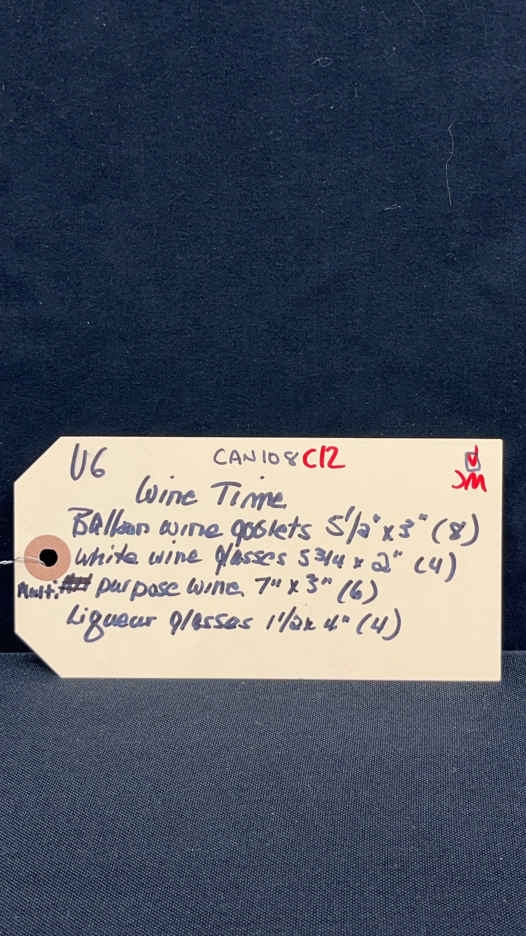 U6 CAN108 C12
JM
Wine Time
Balloon wine goblets 5 1/2" x 3" (8)
white wine glasses 5 3/4 x 2" (4)
Multi purpose wine 7" x 3" (6)
Liqueur glasses 1 1/2 x 4" (4)